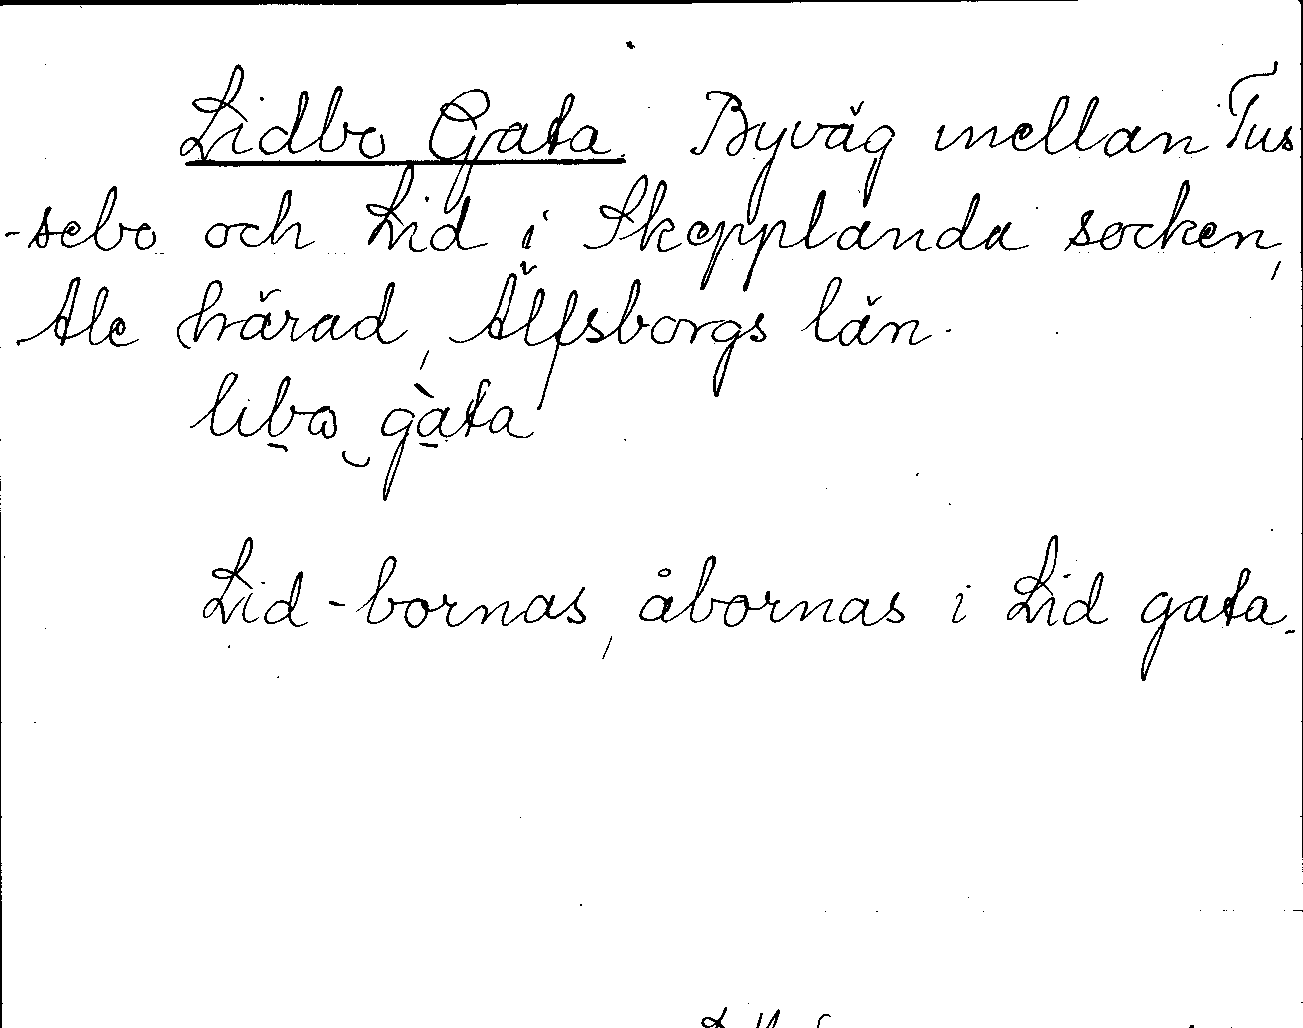 Lidbo Gata. Byväg mellan Tus
-sebo och Lid i Skepplanda socken,
Ale härad, Älfsborgs län.
libo gàta
Lid-bornas, åbornas i Lid gata.